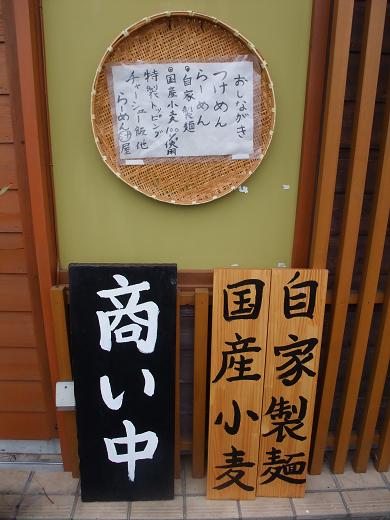 おしながき
つけめん
らーめん
◎自家製麺
◎国産小麦100%使用
特製トッピング
チャーシュー飯他
らーめん 屋
商い中
自家製麺
国産小麦